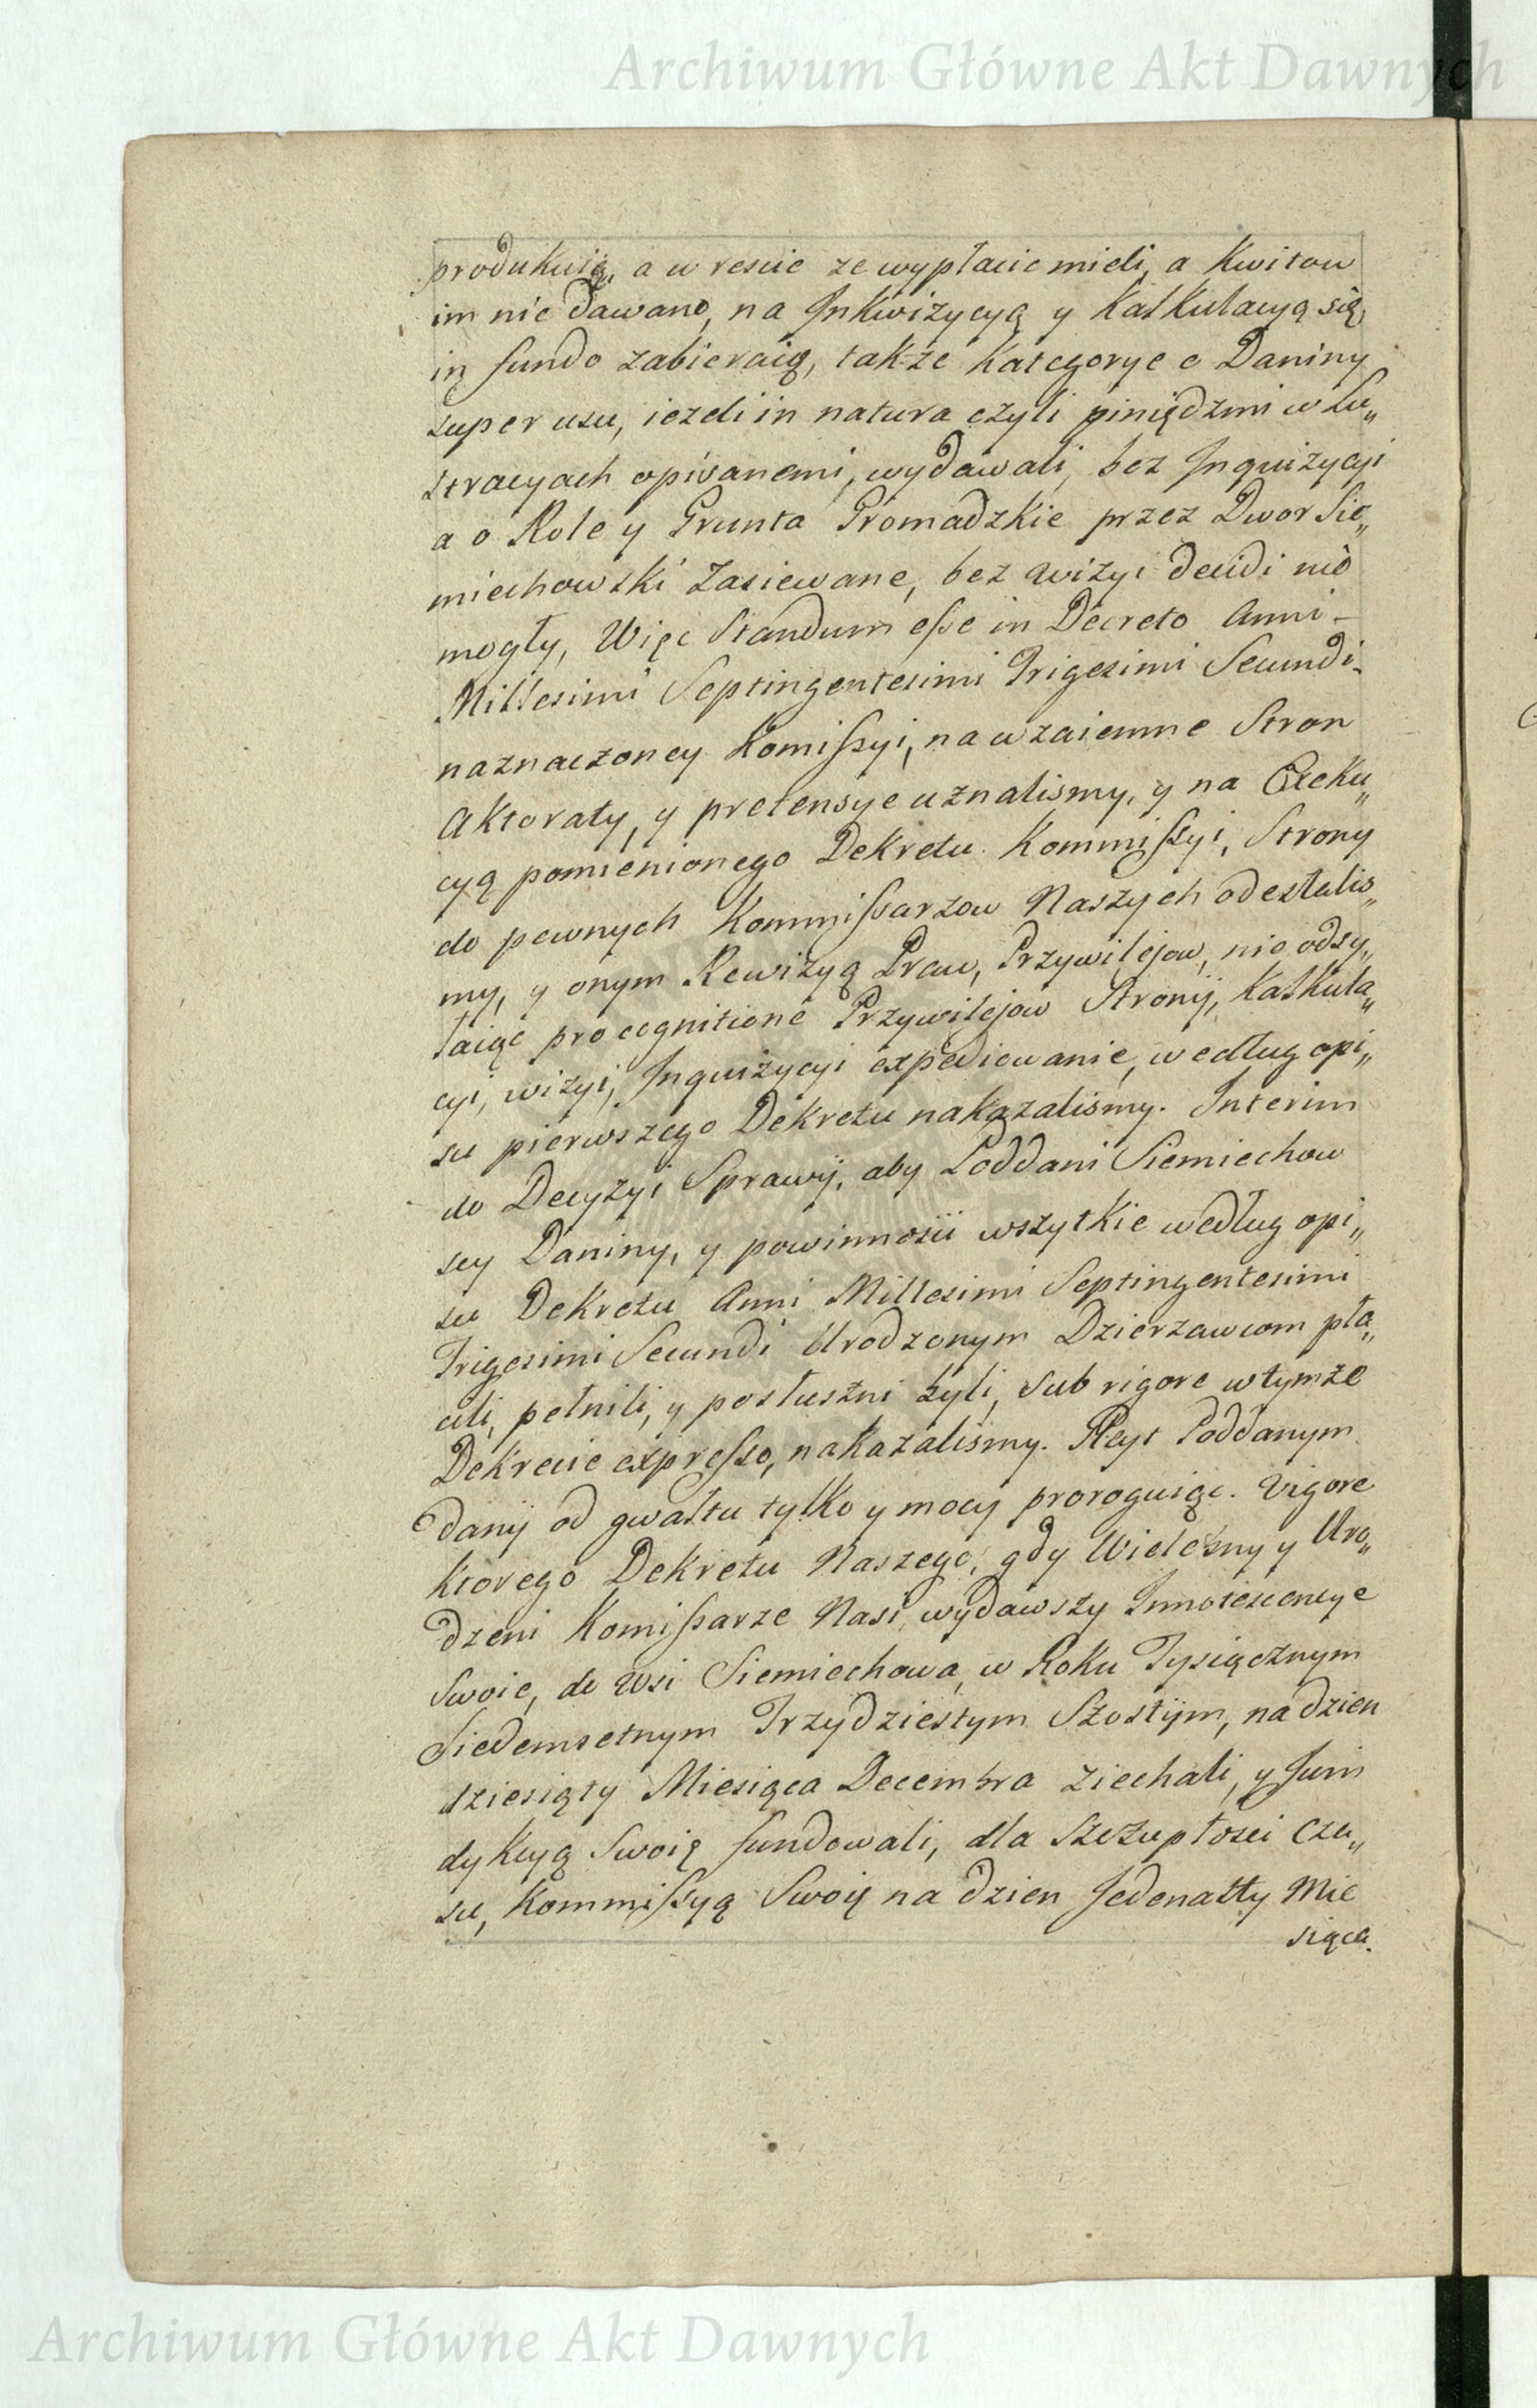 Archiwum Główne Akt Dawnych
produkuią, a w rescie ze wypłacić mieli, a Kwitow
im nie dawano, na Inkwizycyą y Kalkulacyą się
in fundo zabieraią, także Kategorye o Daniny
super usu, iezeli in natura czyli piniędzmi w Lu„
stracyach opisanemi, wydawali, bez Inquizycyi
a o Role y Grunta Gromadzkie przez Dwor Sie„
miechowski Zasiewane, bez wizyi decidi nie
mogły, Więc Standum eſse in Decreto Anni –
Millesimi Septingentesimi Trigesimi Secundi
naznaczoney Komiſsyi, na wzaiemne Stron
Aktoraty, y pretensye uznalismy, y na Exeku„
cyą pomienionego Dekretu Kommiſsyi, Strony
do pewnych Kommiſsarzow Naszych odesłalis„
my, y onym Rewizyą Praw, Przywilejow, nie odsy„
łaiąc pro cognitione Przywilejow Strony, Kalkula„
cyi, wizyi, Inquizycyi expediowanie, według opi„
su pierwszego Dekretu nakazalismy. Interim
do Decyzyi Sprawy, aby Poddani Siemiechow
scy Daniny, y powinnosci wszytkie według opi„
su Dekretu Anni Millesimi Septingentesimi
Trigesimi Secundi Urodzonym Dzierzawcom pła„
cili, pełnili, y posłuszni byli, sub rigore w tymże
Dekrecie expreſso, nakazalismy. Gleyt Poddanym
dany od gwałtu tylko y mocy proroguiąc. Vigore
ktorego Dekretu Naszego, gdy Wielozny y Uro„
dzeni Komiſsarze Nasi, wydawszy Innotescencye
Swoie, do Wsi Siemiechowa, w Roku Tysiącznym
Siedemsetnym Trzydziestym Szostym, na dzien
dziesiąty Miesiąca Decembra Ziechali, y Juris
dykcyą Swoię fundowali, dla Szczupłosci Cza„
su, Kommiſsyą Swoię na dzien Jedenasty Mie
siąca.
Archiwum Główne Akt Dawnych